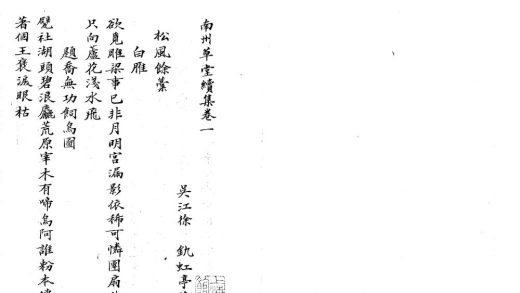 南州草堂續集卷一
吳江徐釚虹亭
松風餘藁
白雁
欲覓雎梁事已非月明宮漏影依稀可憐團扇
只向蘆花淺水飛
題喬無功飼烏圖
甓社湖頭碧浪麤荒原宰木有啼烏阿誰粉本
著個王裒淚眼枯